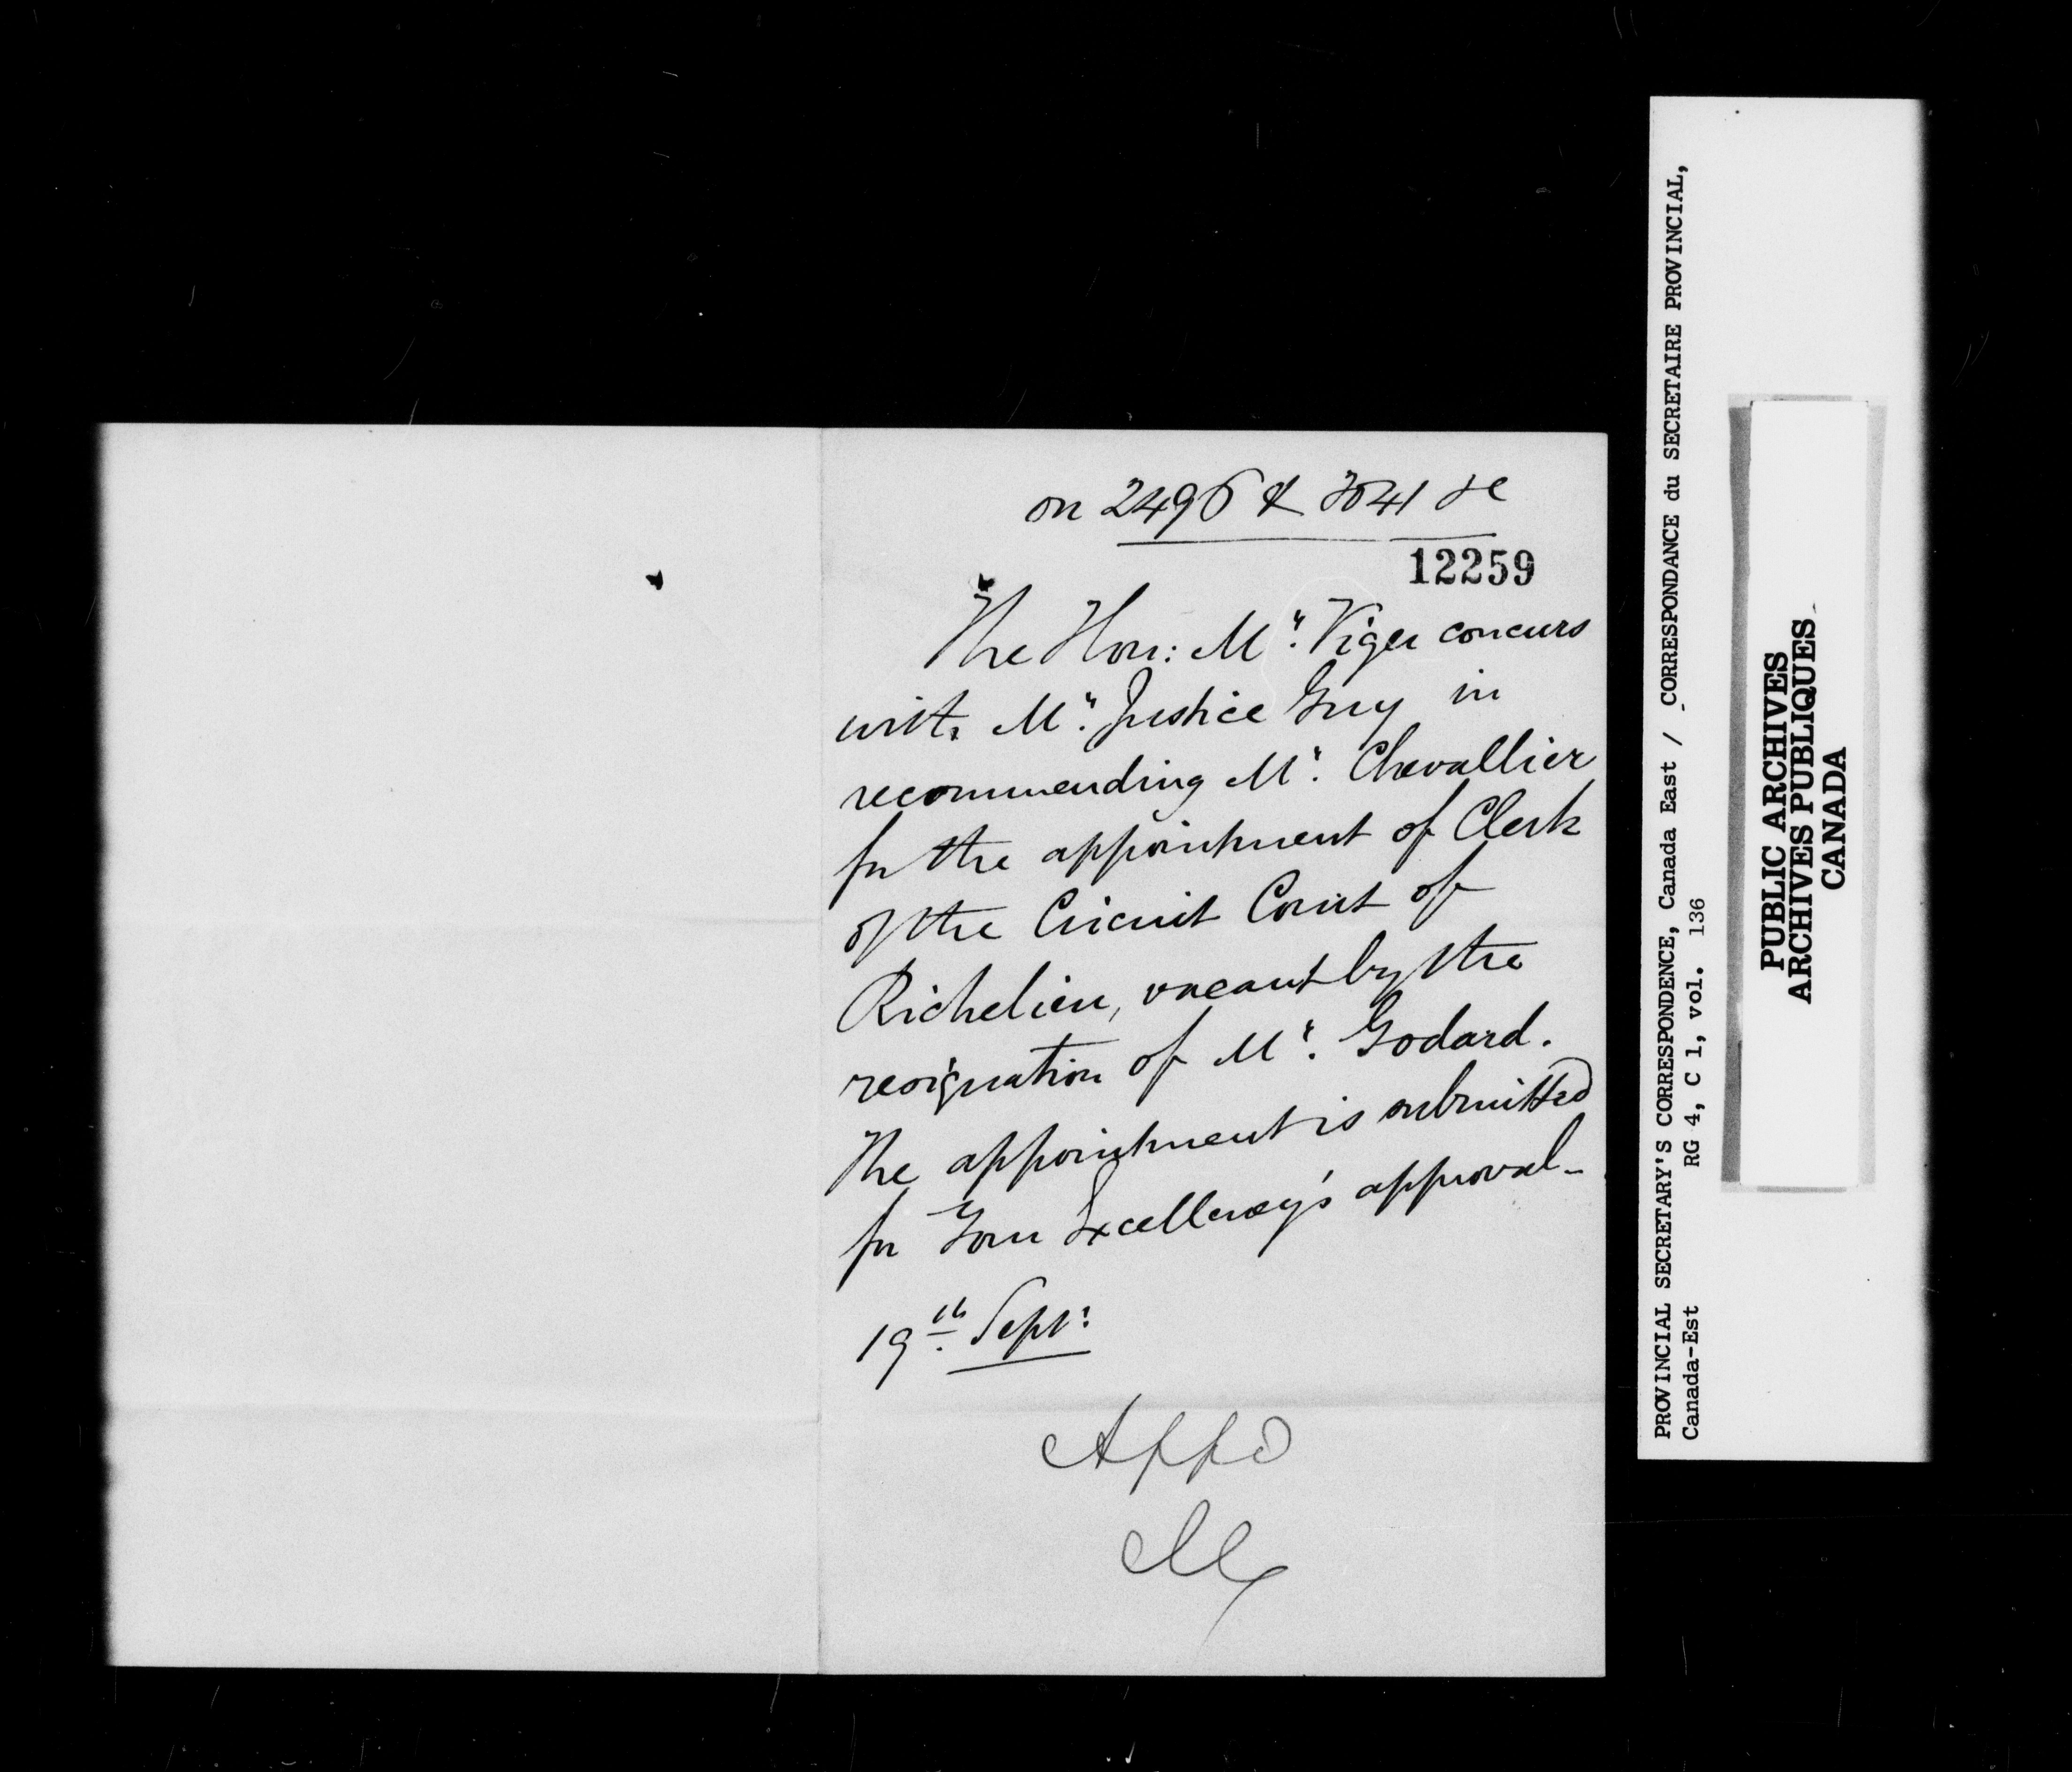 on 2496 & 3041 se
12259
The Hon: Mr. Viger concurs
with Mr. Justice Guy in
recommending Mr. Chevallier
for the appointment of Clerk
of the Circuit Court of
Richelieu, vacant by the
resignation of Mr. Godard.
The appointment is submitted
for Your Excellency's approval_
19th Sept:
Appd
PROVINCIAL SECRETARY'S CORRESPONDENCE, Canada East / CORRESPONDANCE du SECRETAIRE PROVINCIAL,
Canada-Est RG 4, C 1, vol. 136
PUBLIC ARCHIVES
ARCHIVES PUBLIQUES
CANADA